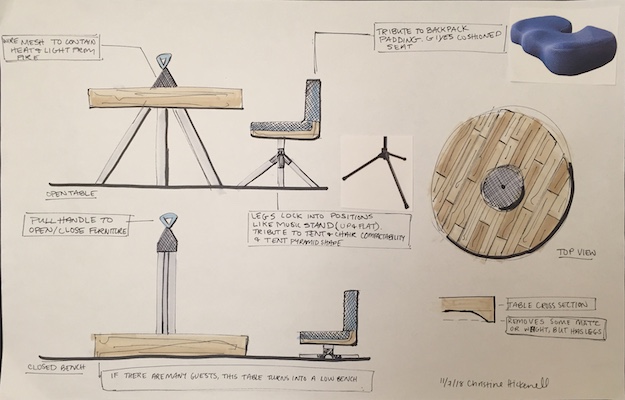 WIRE MESH TO CONTAIN
HEAT & LIGHT FROM
FIRE
TRIBUTE TO BACKPACK
PADDING. GIVES CUSHIONED
SEAT
OPEN TABLE
PULL HANDLE TO
OPEN/CLOSE FURNITURE
LEGS LOCK INTO POSITIONS
LIKE MUSIC STAND (UP & FLAT).
TRIBUTE TO TENT & CHAIR COMPACTABILITY
& TENT PYRAMID SHAPE
TOP VIEW
TABLE CROSS SECTION
REMOVES SOME
OR WEIGHT, BUT HAS LEGS
CLOSED BENCH
IF THERE ARE MANY GUESTS, THIS TABLE TURNS INTO A LOW BENCH
11/7/18 Christine